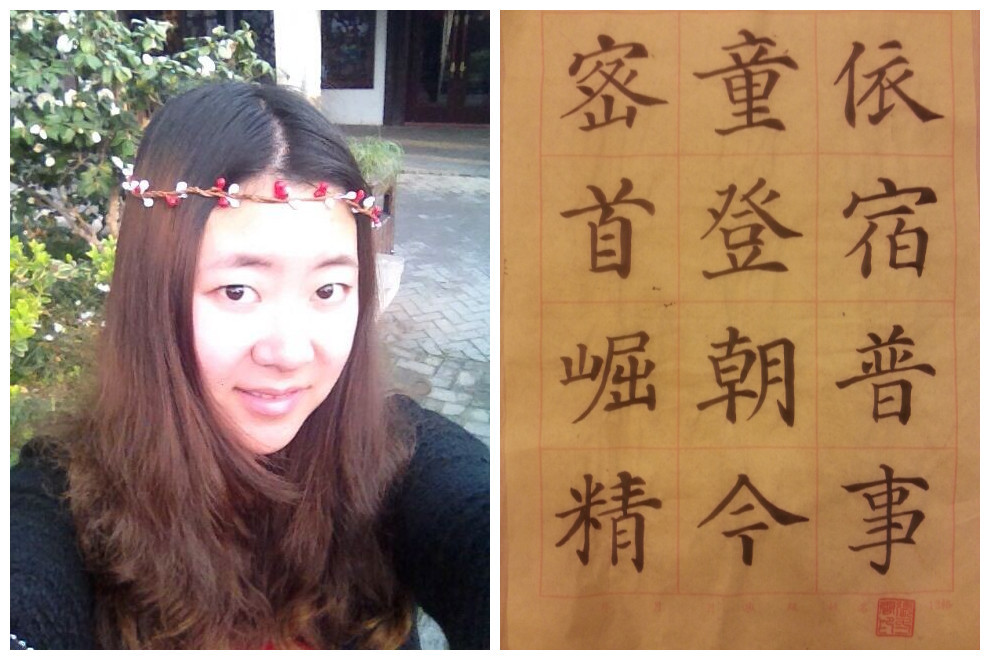 依宿普事
童登朝今
密首崛精